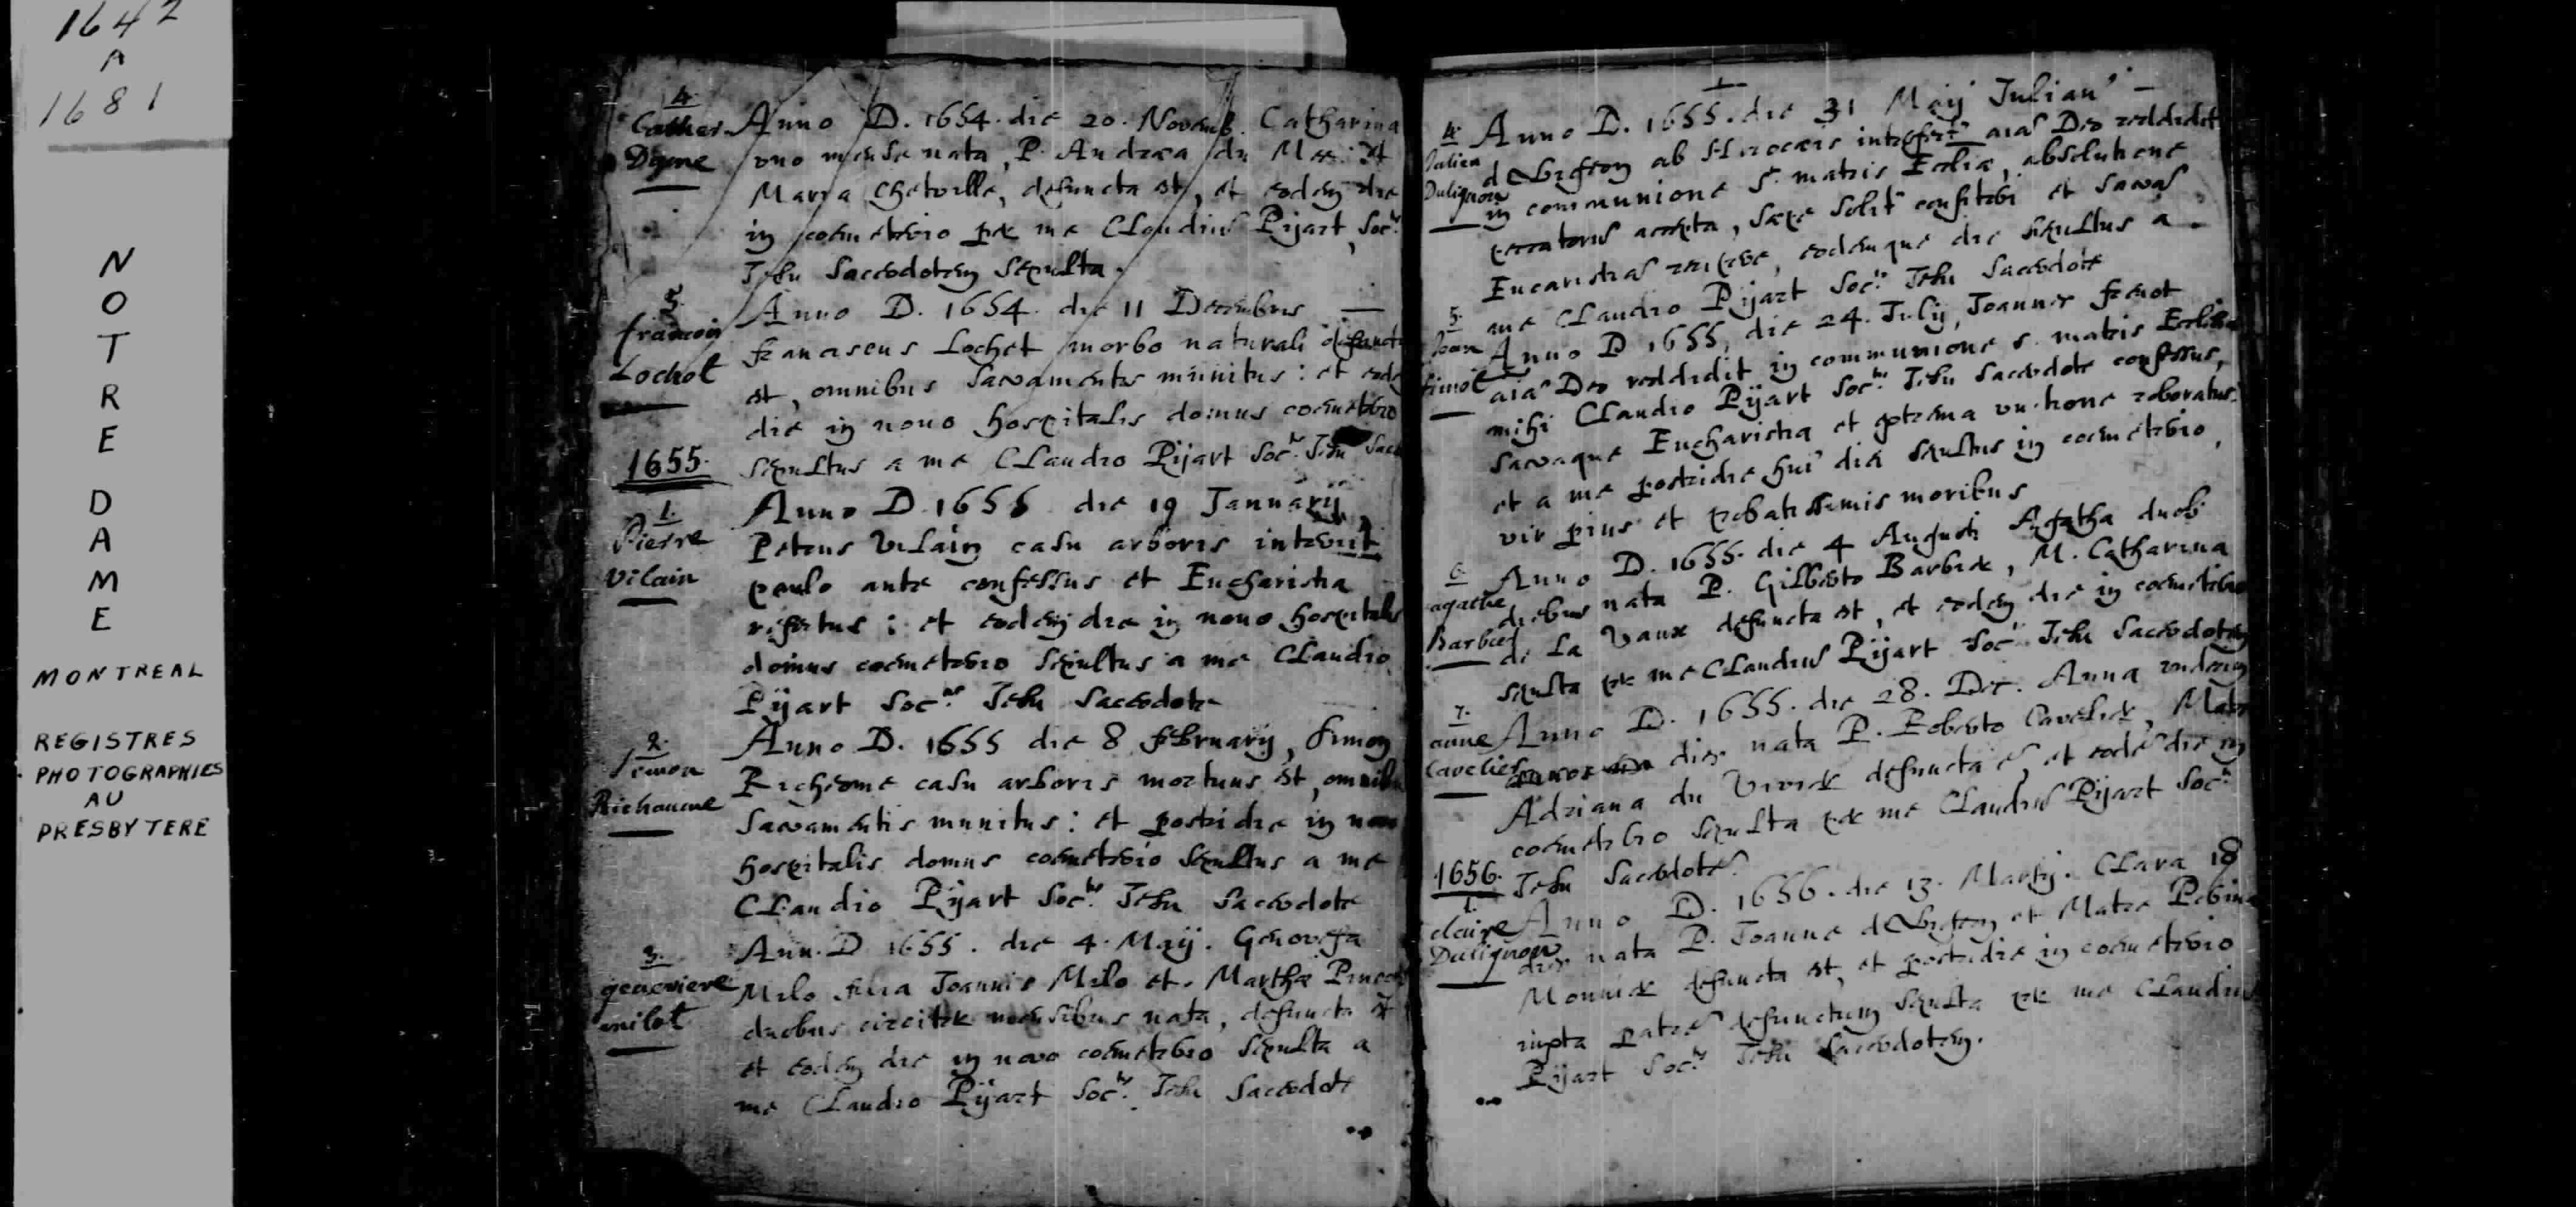 1642
A
1681
NOTRE DAME
MONTREAL
REGISTRES
PHOTOGRAPHIES
AU
PRESBYTERE
4.
Anno D. 1654. die 20. Novemb. Catharina
Dyme
uno mense nata, P. Andræa du M
Maria Chetville, defuncta est, et eodem die
in coemeterio per me Claudiu Pijart, Soc.
Jesu Sacerdotem Sepulta.
5.
francois
Lochet
Anno D. 1654. die 11 Decembris
franciscus Lochet morbo naturali
est, omnibus Sacramentis munitus: et
die in novo hospitalis domus coemeterio
sepultus a me Claudio Pijart Soc. Jesu Sace
1655.
1.
Pierre
Vilain
Anno D. 1655 die 19 Januarij,
Petrus Vilain casu arboris interiit
paulo ante confessus et Eucharistia
refectus: et eodem die in novo hospitalis
domus coemeterio sepultus a me Claudio
Pijart Soc. Jesu Sacerdote
2.
Simon
Richaume
Anno D. 1655 die 8 februarij, Simon
Richeome casu arboris mortuus est, omnibu
Sacramentis munitus: et postridie in
hospitalis domus coemeterio Sepultus a me
Claudio Pijart Soc. Jesu Sacerdote
3.
genevieve
milot
Ann. D 1655. die 4. Maij. Genovefa
Milo filia Joannis Milo et Marthæ
duobus circiter mensibus nata, defuncta
et eodem die in novo coemeterio Sepulta a
me Claudio Pijart Soc. Jesu Sacerdote
4.
Julien
Dulignon
Anno D. 1655. die 31 Maij Julian
d ab Hirocæis aia Deo reddidit
in communione S. matris Ecliæ, absolutione
accepta, sæpe solit confiteri et sacra
Eucaristia, eodemque die sepultus a
me Claudio Pijart Soc. Jesu Sacerdote
5.
Jean
Anno D 1655, die 24. Julij, Joannes
aia Deo reddidit in communione s. matris
mihi Claudio Pijart Soc. Jesu Sacerdote confessus,
sacraque Eucharistia et extrema unctione roboratus.
et a me postridie hui diei sepultus in coemeterio,
vir pius et probatissimis moribus
6.
agathe
Barbier
Anno D. 1655. die 4 Augusti Agatha duob
diebus nata P. Gilberto Barbier, M. Catharina
de La Vaux defuncta est, et eodem die in coemeterio
sepulta per me Claudiu Pijart Soc. Jesu Sacerdotem
7.
anne
Cavelier
Anno D. 1655. die 28. Dec. Anna undecim
dies nata P. Roberto Cavelier, Matr
Adriana du Vivier defuncta e, et eode die in
coemeterio sepulta per me Claudiu Pijart Soc.
1656.
Jesu Sacerdote
1.
claire
Dulignon
Anno D. 1656. die 13. Martij. Clara 18
dies nata P. Joanne et Matre
Monnier defuncta est, et postridie in coemeterio
iuxta patre defunctum sepulta per me Claudiu
Pijart Soc. Jesu Sacerdotem.